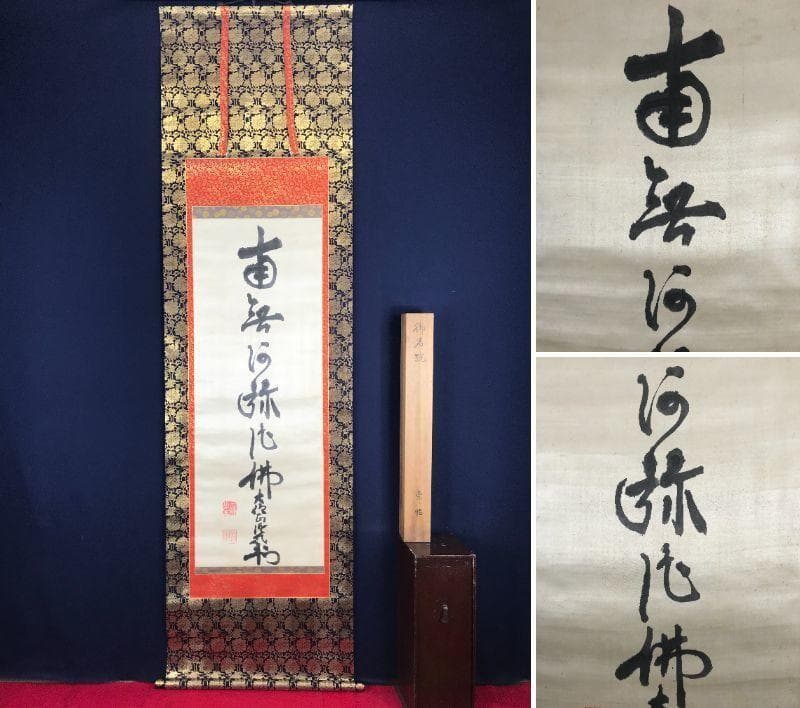 南無阿弥陀佛
御名號
南無阿
阿弥陀佛